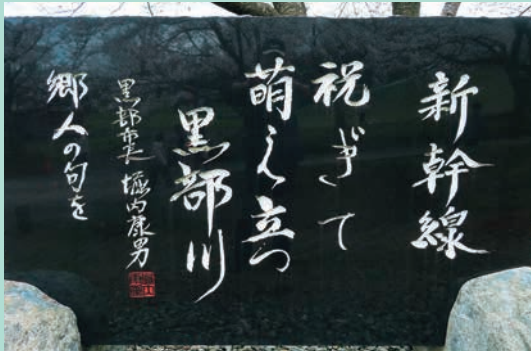 新幹線
祝ぎて
萌え立つ
黒部川
黒部市長 堀内康男
郷人の句を